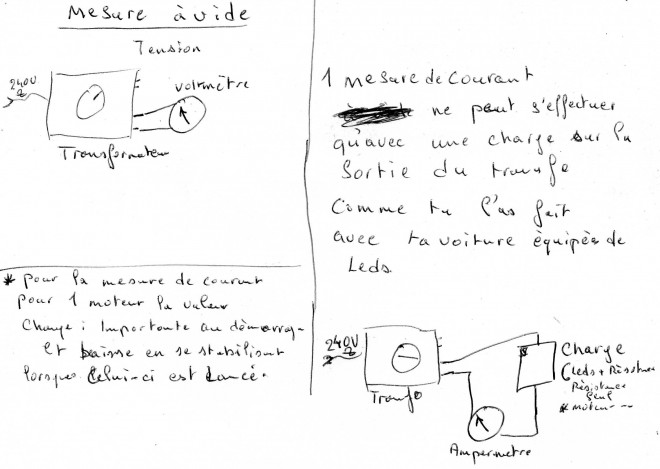 Mesure à vide
Tension
240V
voltmètre
Transformateur
* pour la mesure de courant
pour 1 moteur la valeur
change : Importante au démarrage
Et baisse en se stabilisant
lorsque Celui-ci est Lancé.
1 mesure de courant
ne peut s'effectuer
qu'avec une charge sur la
Sortie du transfo
Comme tu l'as fait
avec ta voiture équipée de
Leds.
240V
Transfo
Ampermetre
Charge
(Leds + Résistance
Résistance
Seul
* moteur ---